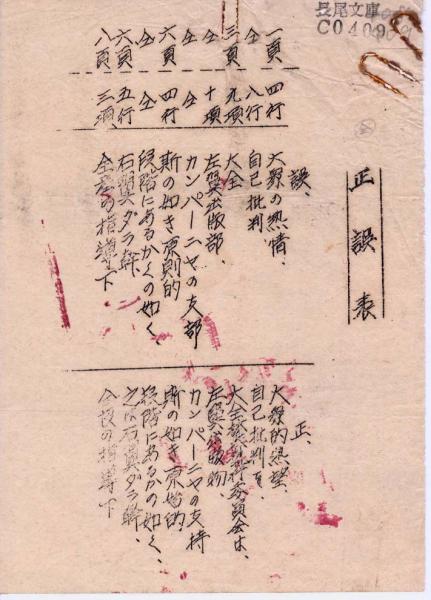 長尾文庫
正誤表
一頁 四行
仝 八行
三頁 九項
仝 十項
仝 仝
六頁 四行
仝 仝
六頁 五行
八頁 三項
誤、
大衆の熱情、
自己批判
大全
左翼出版部、
カンパーニヤの支部
斯の如き原則的
段階にあるかくの如く、
右翼ダラ幹
の指導下
正、
大衆的熱望、
自己批判を、
大全 委員会は、
左翼出版物、
カンパーニヤの支持
斯の如き原始的、
段階にあるかの如く、
右翼ダラ幹、
の指導下